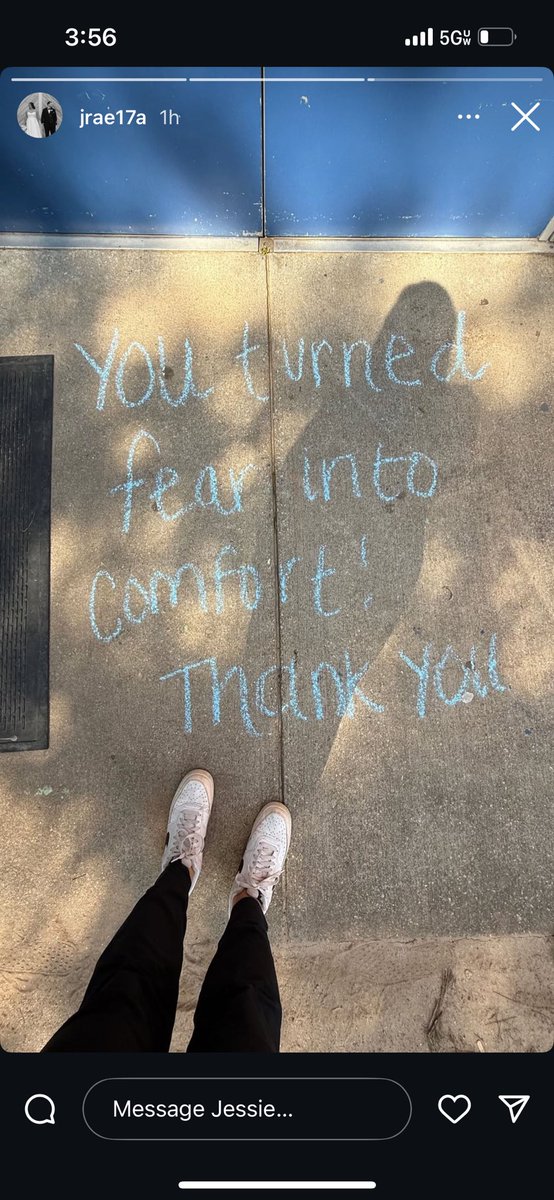 3:56
5GUW
jrae17a 1h
You turned
fear into
comfort!
Thank you
Message Jessie...